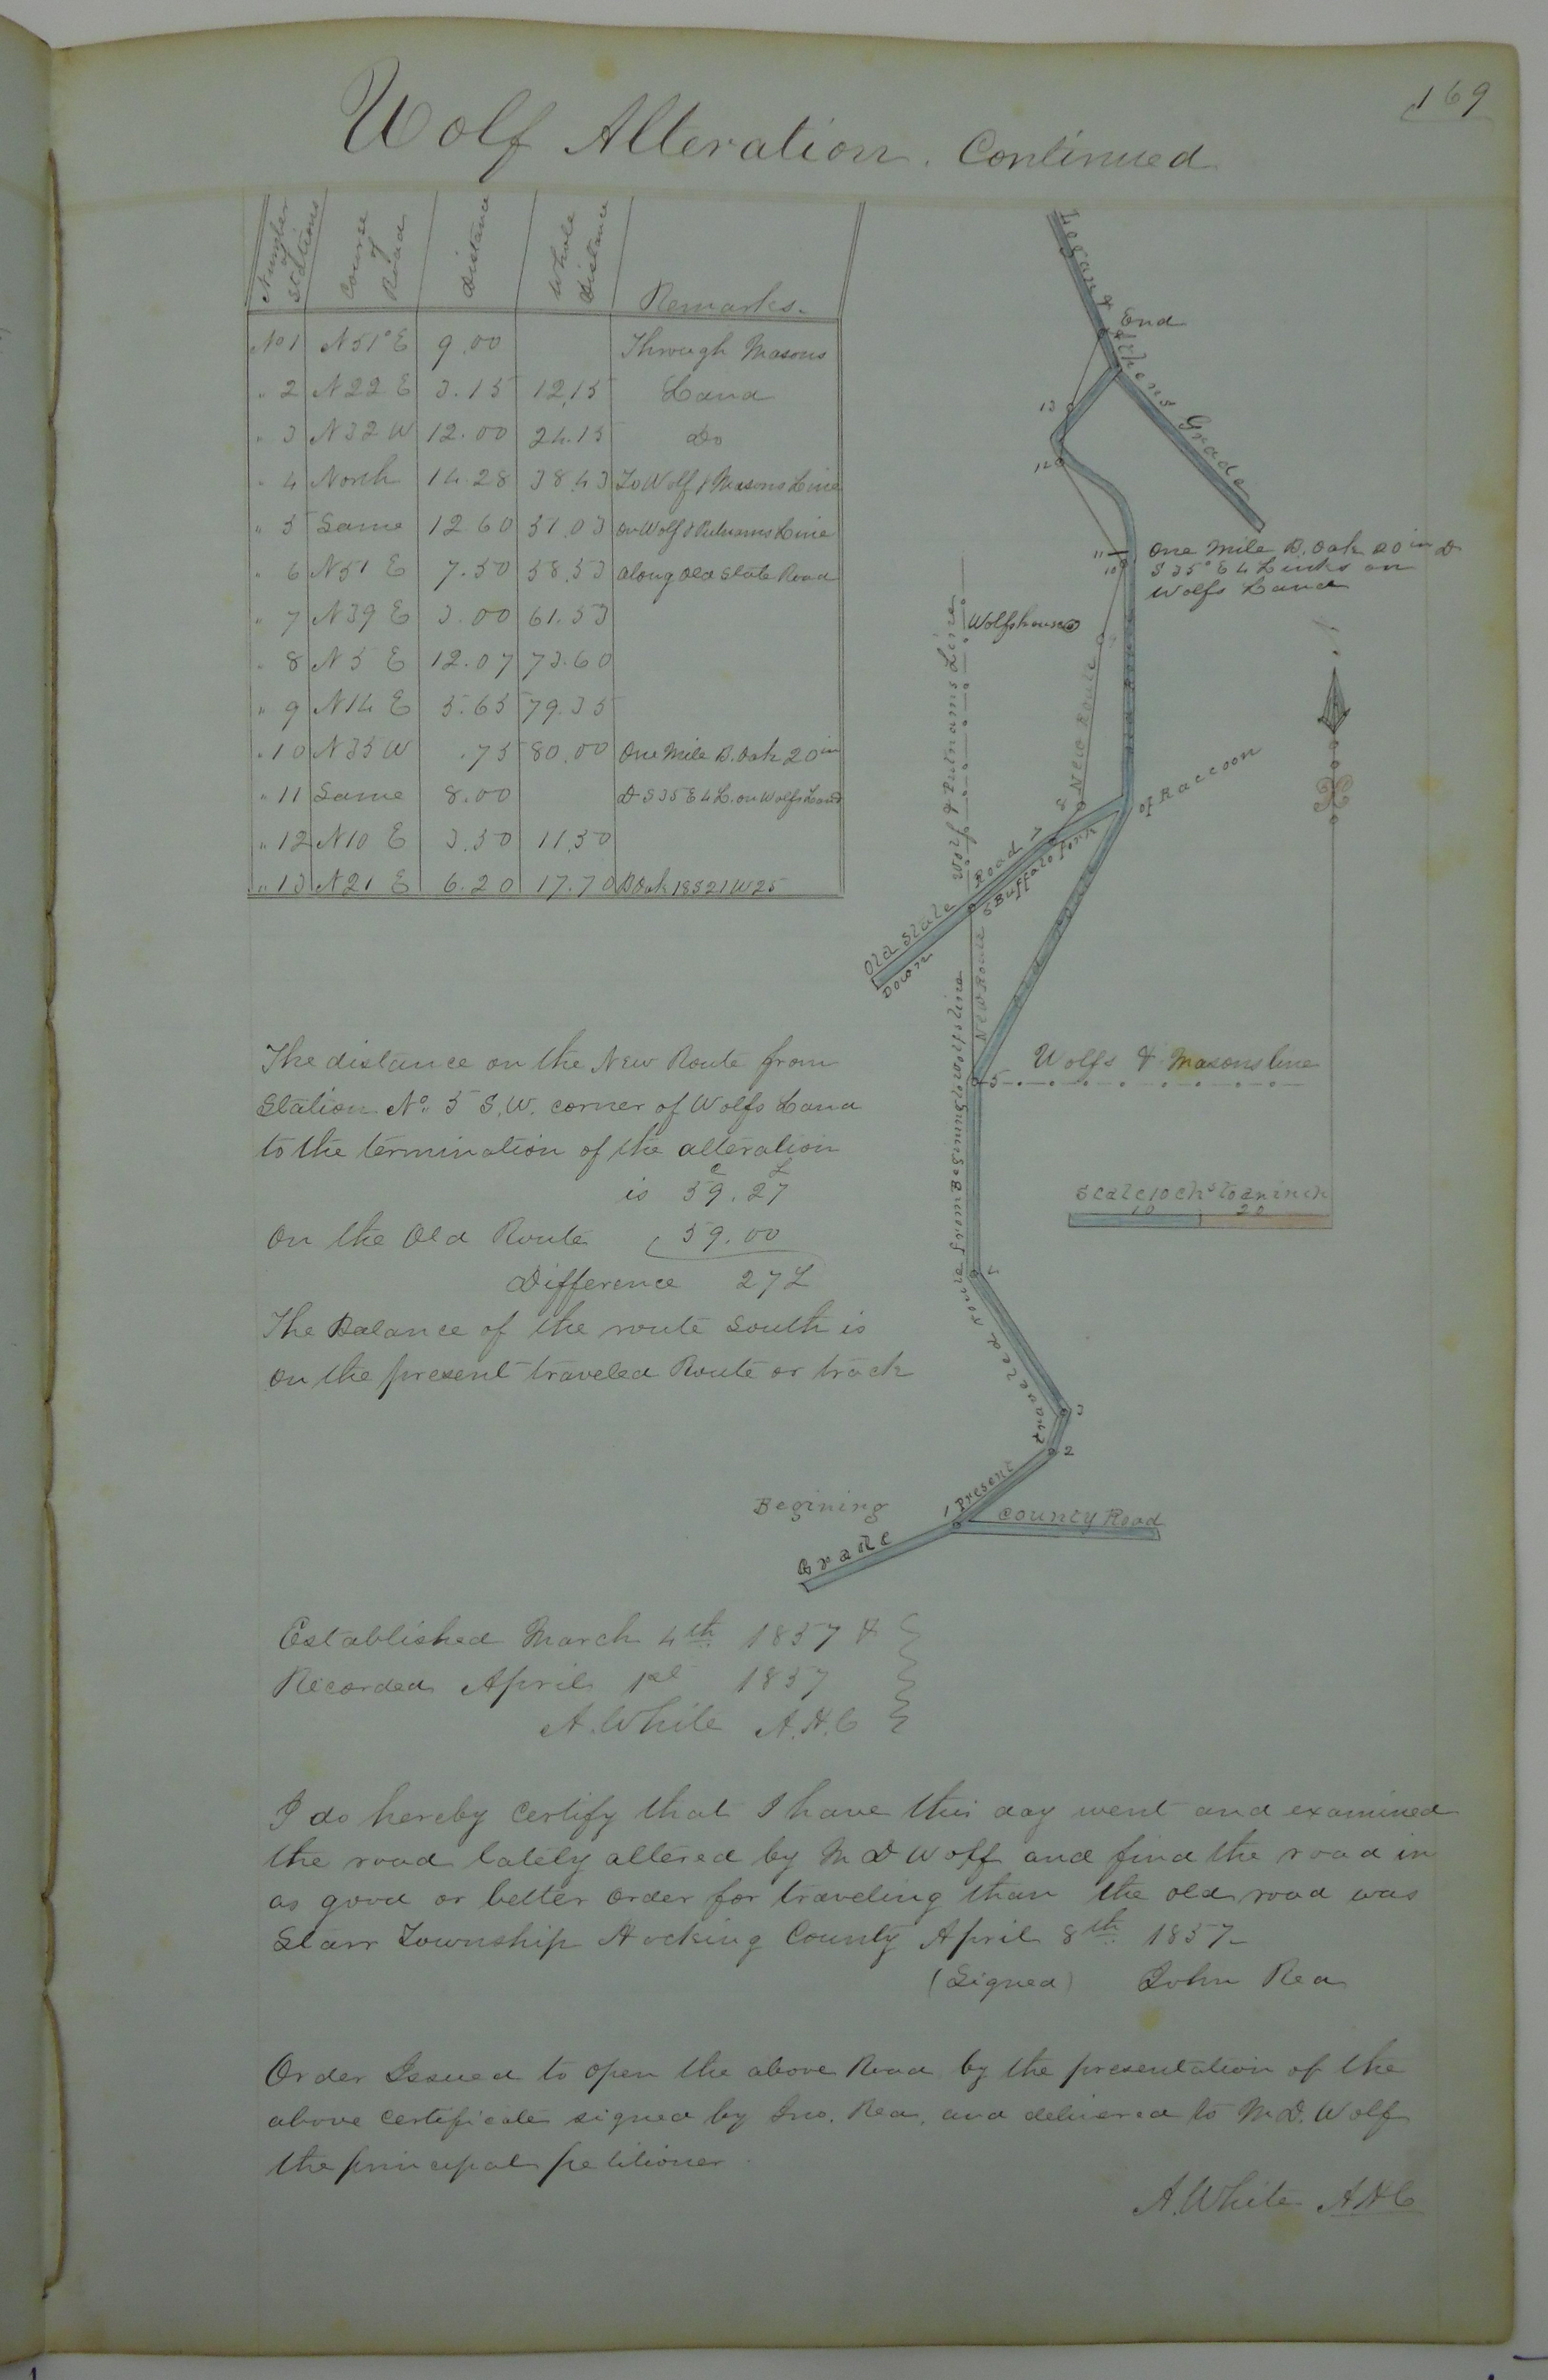 169
Wolf Alteration. Continued
Number of Stations | Course of Road | Distance | Whole Distance | Remarks.
No 1 | N 51° E | 9.00 | | Through Masons
" 2 | N 22 E | 3.15 | 12.15 | Land
" 3 | N 32 W | 12.00 | 24.15 | Do
" 4 | North | 14.28 | 38.43 | To Wolf & Masons Line
" 5 | Same | 12.60 | 51.03 | on Wolf & Putnams Line
" 6 | N 51 E | 7.50 | 58.53 | along old State Road
" 7 | N 39 E | 3.00 | 61.53
" 8 | N 5 E | 12.07 | 73.60
" 9 | N 14 E | 5.65 | 79.35
" 10 | N 35 W | .75 | 80.00 | One Mile B. Oak 20 in
" 11 | Same | 8.00 | | D S 35 E 4 L. on Wolfs Land
" 12 | N 10 E | 3.50 | 11.50
" 13 | N 21 E | 6.20 | 17.70 | B Oak 18 S 21 W 25
Logan & Athens Grade
End
13
12
11
10
One Mile B. Oak 20 in D
S 35° E 4 Links on
Wolfs Land
Wolfs house
9
Wolf & Putnams Line
New Route
8
of Raccoon
Old State Road 7
Down
5 Buffalo Fork
Old Road
New Route
Wolfs & Masons line
5
Scale 10 chs to an inch
10 20
Present traveled route from Begining to Wolfs line
4
3
2
1
Begining
Grade
County Road
The distance on the New Route from
Station No. 5 S.W. corner of Wolfs Land
to the termination of the alteration
C L
is 59.27
On the Old Route 59.00
Difference 27 L
The Balance of the route South is
on the present traveled Route or track
Established March 4th 1857 &
Recorded April 1st 1857
A. White A.H.C
I do hereby Certify that I have this day went and examined
the road lately altered by M D Wolf and find the road in
as good or better order for traveling than the old road was
Starr Township Hocking County April 8th 1857
(Signed) John Rea
Order Issued to open the above Road by the presentation of the
above certificate signed by Jno. Rea, and delivered to M.D. Wolf
the principal petitioner.
A. White A H C